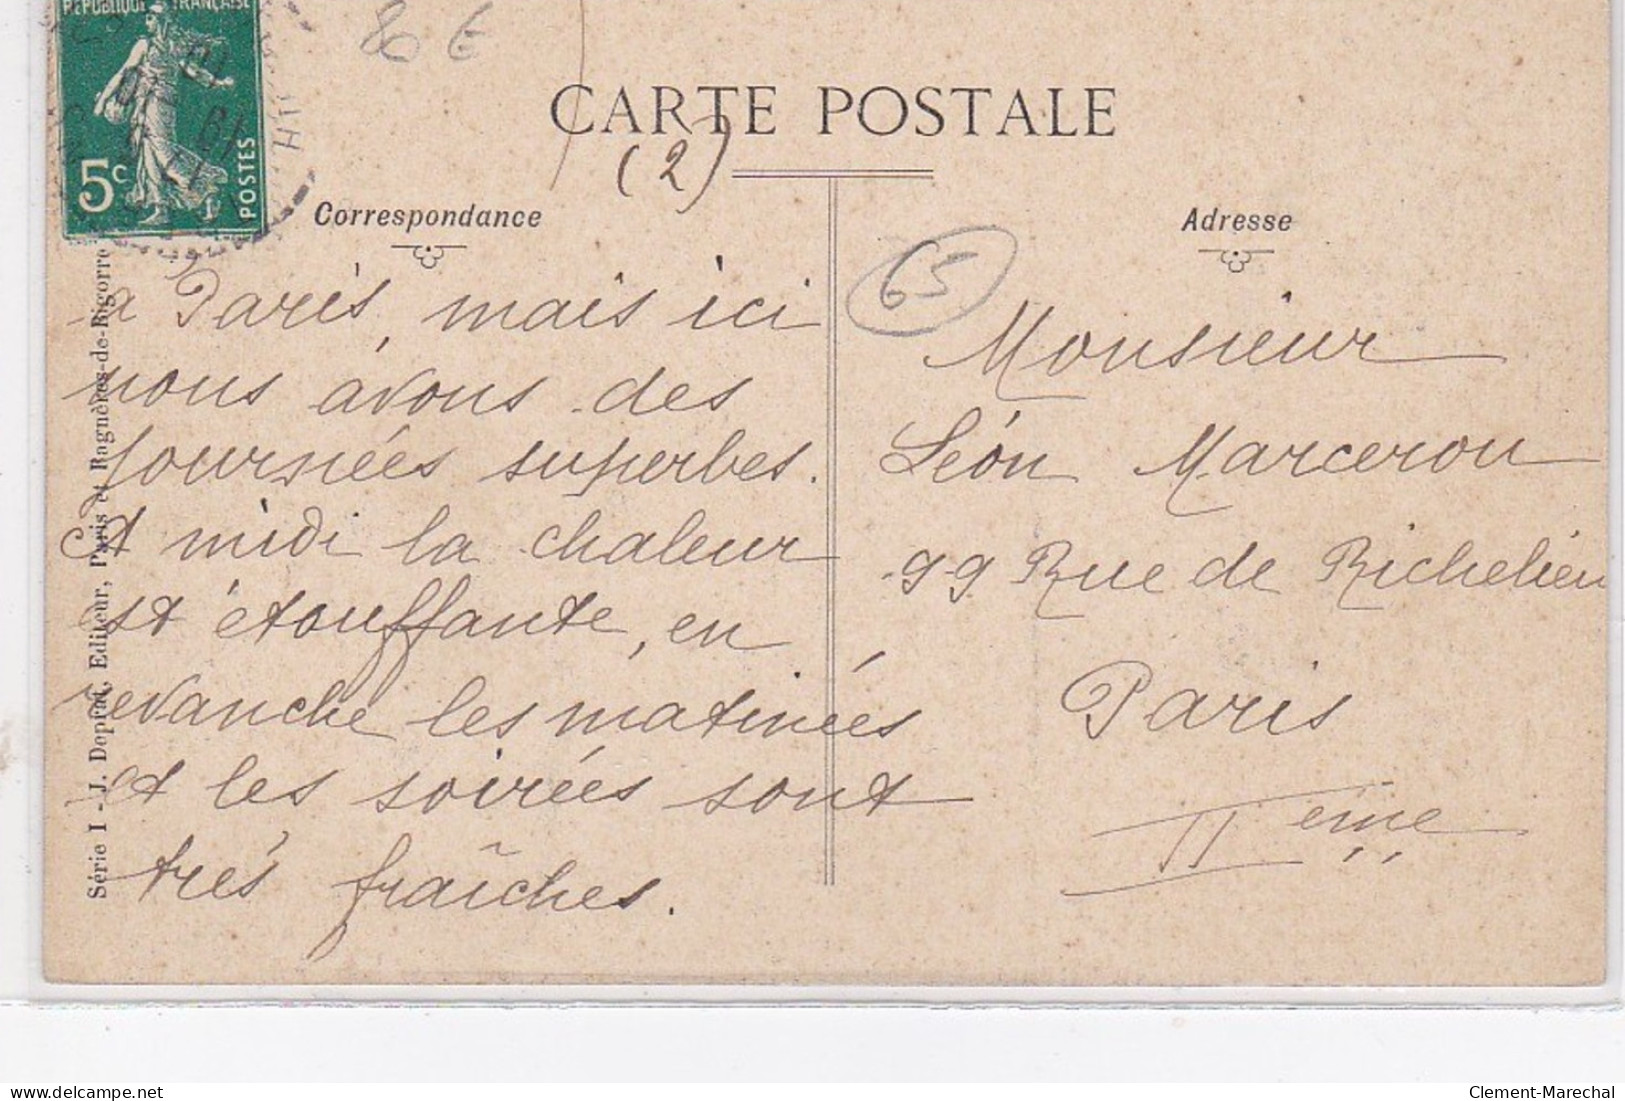 RÉPUBLIQUE FRANÇAISE
5c
POSTES
80 €
CARTE POSTALE
(2)
Correspondance
Adresse
65
à Paris, mais ici
nous avons des
journées superbes.
A midi la chaleur
est étouffante, en
revanche les matinées
et les soirées sont
très fraîches.
Monsieur
Léon Marceron
99 Rue de Richelieu
Paris
IIème
Série I - J. Deprat, Editeur, Paris et Bagnères-de-Bigorre
Clement-Marechal